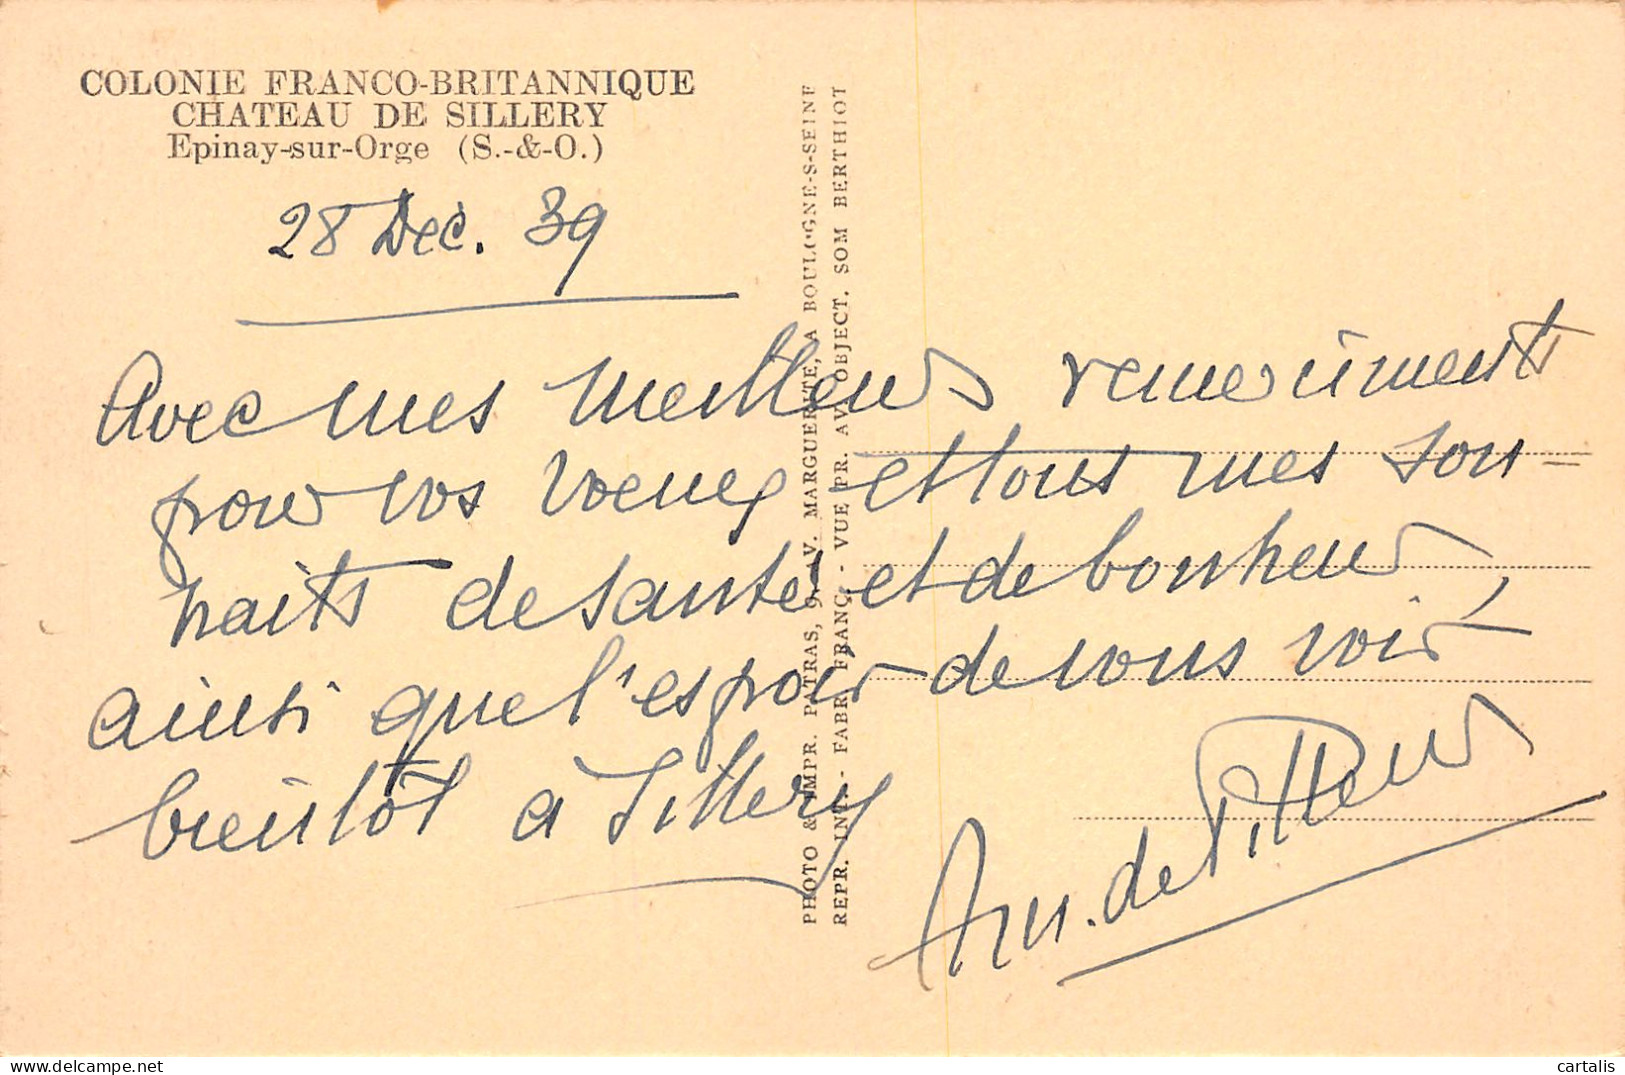 COLONIE FRANCO-BRITANNIQUE
CHATEAU DE SILLERY
Epinay-sur-Orge (S.-&-O.)
28 Dec. 39
Avec mes meilleurs remerciments
pour vos voeux et tous mes sou-
haits de santé et de bonheur,
ainsi que l'espoir de vous voir
bientôt à Sillery
de
PHOTO & IMPR. PATRAS, 9, AV. MARGUERITE, A BOULOGNE-S-SEINE
REPR. INT. - FABR. FRANC. - VUE PR. AV. OBJECT. SOM BERTHIOT
cartalis